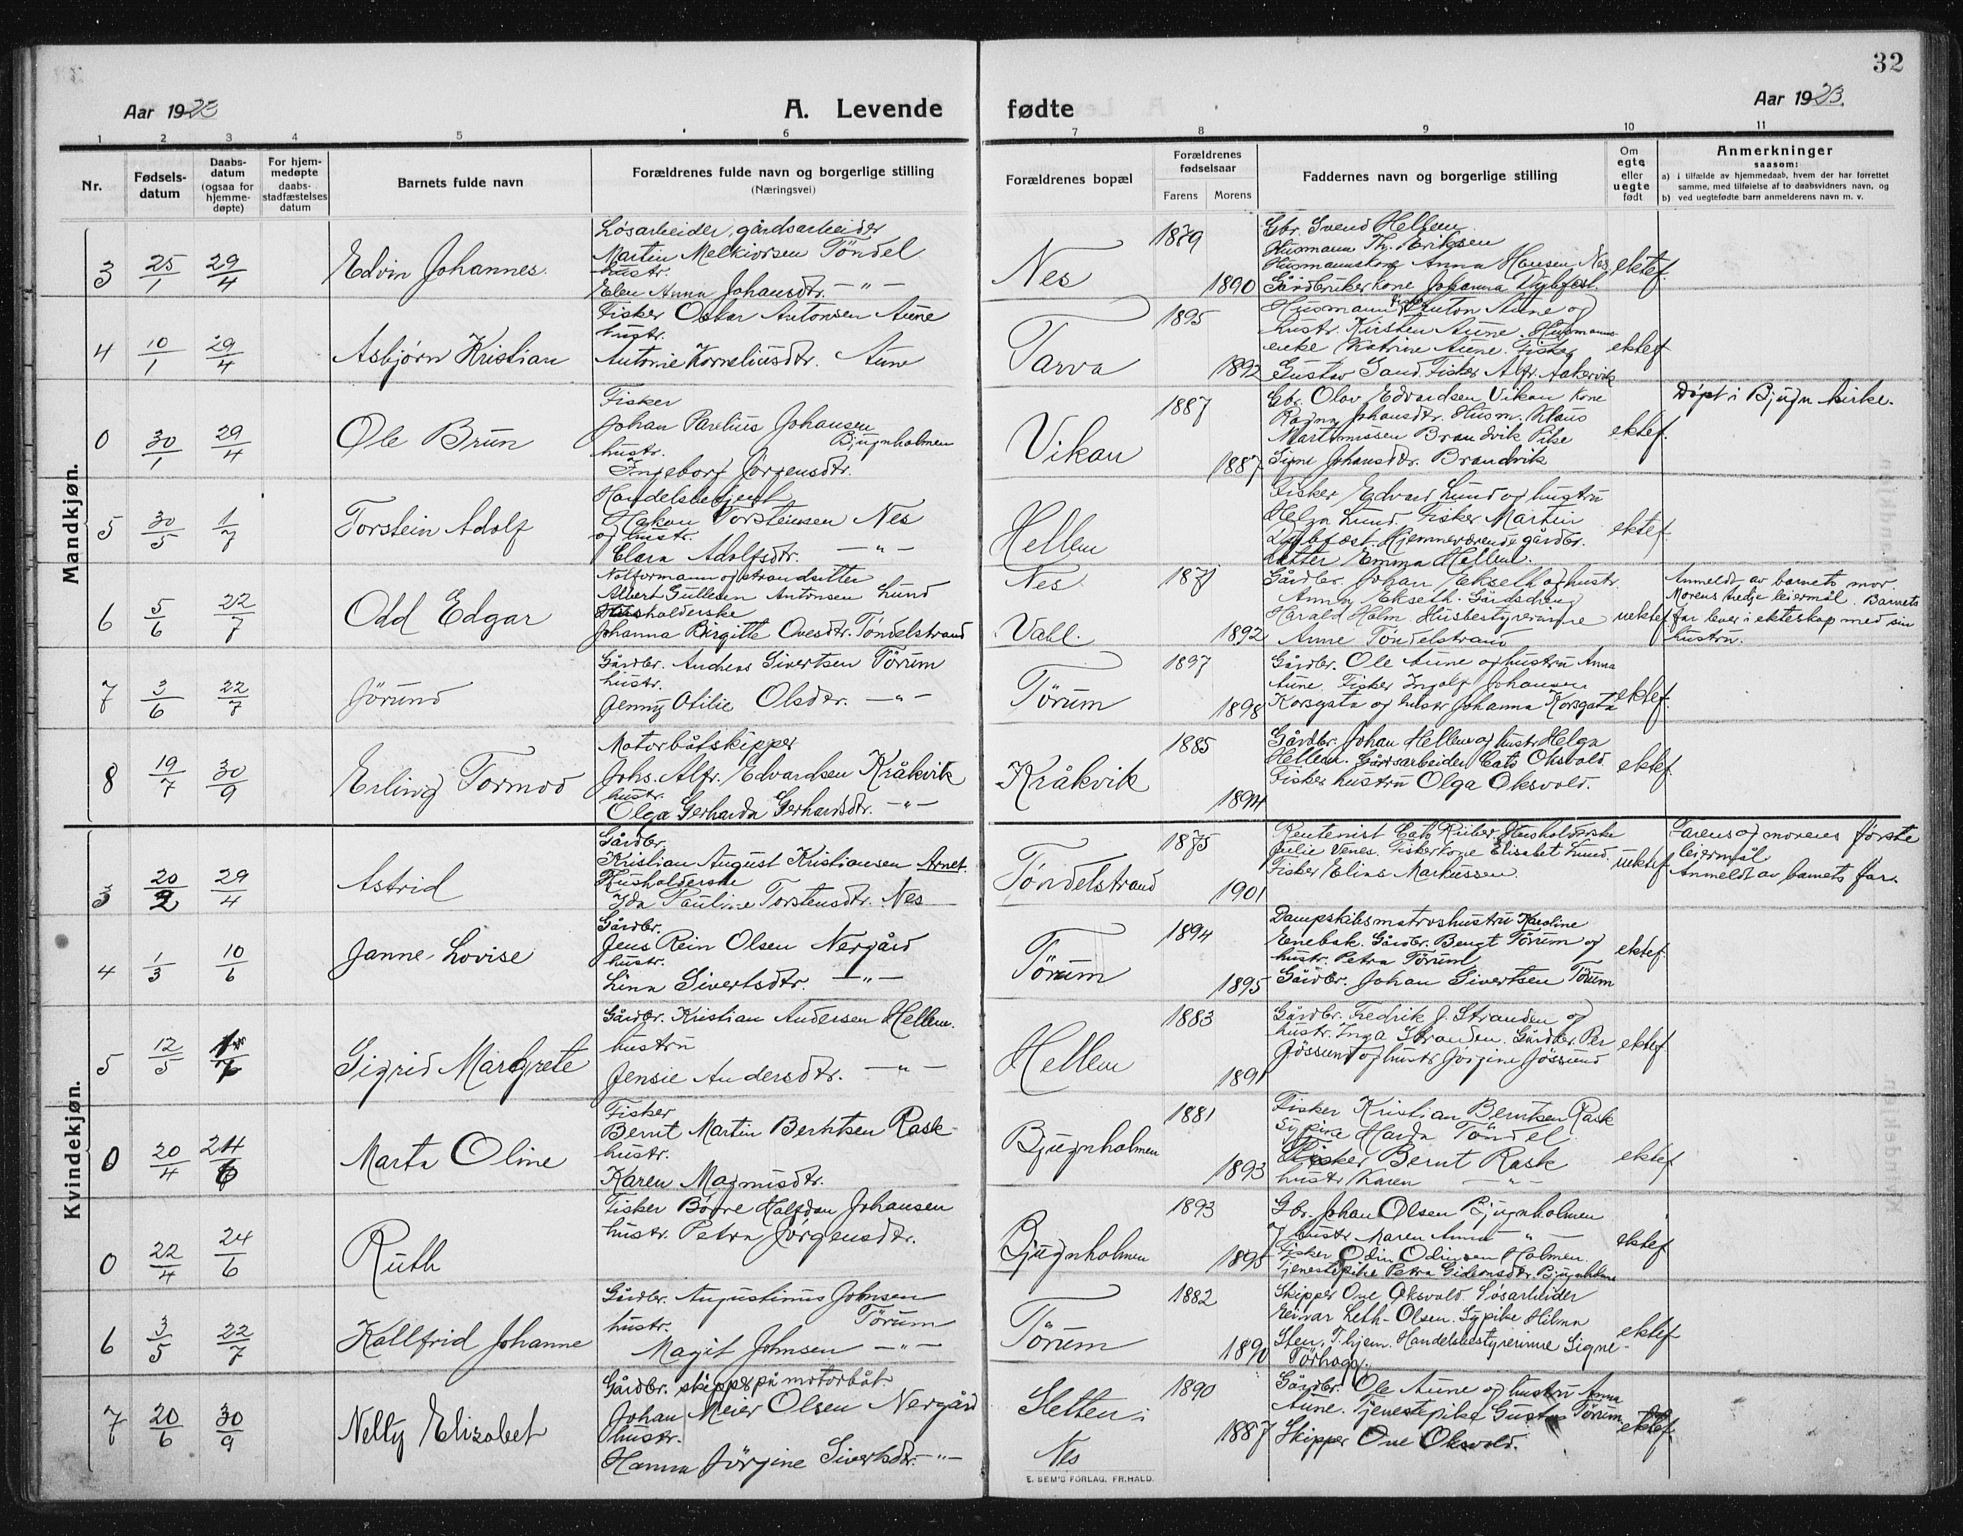 32
Aar 1923
A. Levende
fødte
Aar 1923.
1 2 3 4 5 6 7 8 9 10 11
Nr.
Fødsels-
datum
Daabs-
datum
(ogsaa for
hjemme-
døpte)
For hjem-
medøpte
daabs-
stadfæstelses
datum
Barnets fulde navn
Forældrenes fulde navn og borgerlige stilling
(Næringsvei)
Forældrenes bopæl
Forældrenes
fødselsaar
Farens Morens
Faddernes navn og borgerlige stilling
Om
egte
eller
uegte
født
Anmerkninger
saasom:
a) i tilfælde av hjemmedaab, hvem der har forrettet
samme, med tilføielse af to daabsvidners navn, og
b) ved uegtefødte barn anmelderens navn m. v.
Mandkjøn.
3 25/1 29/4 Edvin Johannes.
Løsarbeider, gårdsarbeider
Martin Melkiorsen Töndel
hustr.
Elen Anna Johansdtr. —"—
Nes 1879 1890
Gbr. Svend Hellem.
Husmann Th. Eriksen
Husmannskone Anna Hansen Nes
Gårdbrukerkone Johanna Dybfest.
ektef.
4 10/1 29/4 Asbjørn Kristian
Fisker Oskar Antonsen Aune
hustr.
Antonie Korneliusdtr. Aune
Tarva 1895 1892
Husmann Fisker Anton Aune og
hustr. Kirsten Aune. Husmanns-
enke Katrine Aune. Fisker
Gustav Sand. Fisker Alfr. Aakervik
ektef
0 30/1 29/4 Ole Brun
Fisker
Johan Parelius Johansen
Bjugnholmen
hustr.
Ingeborg Jørgensdtr.
Vikan 1887 1887
Gbr. Olov Edvardsen Vikan kone
Ragna Johansdtr. Husm. Klaus
Martinussen Brandvik Pike
Signe Johansdtr. Brandvik
ektef.
Døpt i Bjugn kirke.
5 30/5 1/7 Torstein Adolf
Handelsbetjent
Hakon Torsteinsen Nes
og hustr.
Clara Adolfsdtr. —"—
Hellem
Fisker Edvard Lund og hustru
Helga Lund. Fisker Martin
Dybfest. Hjemmeværende gårdbr.
datter Emma Hellem.
ektef.
6 5/6 22/7 Odd Edgar
Notformann og strandsitter
Albert Gullesen Antonsen Lund
Husholderske
Johanna Birgitte Ovesdtr. Töndelstrand
Nes.
Vall. 1871 1892
Gårdbr. Johan Ekseth og hustr.
Anna Ekseth. Gårdsdreng
Harald Holm. Husbestyrerinne
Anne Töndelstrand
uektef.
Anmeldt av barnets mor.
Morens tredje leiermål. Barnets
far lever i ekteskap med sin
hustru.
7 3/6 22/7 Jörund
Gårdbr. Andreas Sivertsen Törum
hustr.
Jenny Otilie Olsdtr. —"—
Törum 1897 1898
Gårdbr. Ole Aune og hustru Anna
Aune. Fisker Ingolf Johansen
Korsgata og hustr Johanna Korsgata
ektef.
8 19/7 30/9 Erling Tormod
Motorbåtskipper
Johs. Alfr. Edvardsen Kråkvik
hustr.
Olga Gerharda Gerhardsdtr. —"—
Kråkvik 1885 1894
Gårdbr. Johan Hellem og hustr Helga
Hellem. Gårdsarbeider Cato Oksvold
Fisker hustru Olga Oksvold.
ektef.
Kvindekjøn.
3 20/2 29/4 Astrid
Gårdbr.
Kristian August Kristiansen Arnet.
Husholderske
Ida Pauline Torstensdtr. Nes
Töndelstrand 1875 1901
Rentenist Cato Ruber. Husholderske
Julie Venes. Fiskerkone Elisabet Lund.
Fisker Elias Markussen.
uektef.
Farens og morens første
leiermål
Anmeldt av barnets far.
4 1/3 10/6 Janne Lovise
Gårdbr.
Jens Rein Olsen Nergård
hustr.
Lina Sivertsdtr. —"—
Törum 1894 1895
Dampskibsmatroshustru Karoline
Enebak. Gårdbr. Bengt Törum og
hustr. Petra Törum
Gårdbr. Johan Sivertsen Törum
ektef.
5 12/5 1/7 Sigrid Margrete
Gårdbr. Kristian Andersen Hellem.
hustru
Jensie Andersdtr. —"—
Hellem 1883 1891
Gårdbr. Fredrik J. Stranden og
hustr. Inga Stranden. Gårdbr. Per
Jössund og hustr Jörgine Jössund
ektef.
0 20/4 24/6 Marta Oline
Fisker
Bernt Martin Berntsen Rask
hustr.
Karen Magnusdtr.
Bjugnholmen 1881 1893
Fisker Kristian Berntsen Rask
Sypike Harda Töndel
Fisker Bernt Rask
hustr Karen —"—
ektef
0 22/4 24/6 Ruth
Fisker Börre Halfdan Johansen
hustr. Petra Jörgensdtr.
Bjugnholmen 1893 1895
Gbr. Johan Olsen Bjugnholmen
hustr Maren Anna "
Fisker Odin Odinsen Holmen
Tjenestepike Petra Gideonsdtr. Bjugnholmen
ektef
6 3/5 22/7 Kallfrid Johanne
Gårdbr. Augustinus Johnsen
Törum
hustr.
Magit Johnsen —"—
Törum 1882 1890
Skipper Ove Oksvold Løsarbeider
Reinar Leth-Olsen. Sypike Hilma
Sten, T. hjem. Handelsbestyrerinne Signe
Törhogg.
ektef
7 20/6 30/9 Nelly Elisabet
Gårdbr. skipper på motorbåt
Johan Meier Olsen Nergård
hustr.
Hanna Jörgine Sivertsdtr. —"—
Sletten i
Nes 1890 1887
Gårdbr. Ole Aune og hustru Anna
Aune. Tjenestepike Gusta Törum
Skipper Ove Oksvold.
ektef.
E. SEM'S FORLAG, FR.HALD.